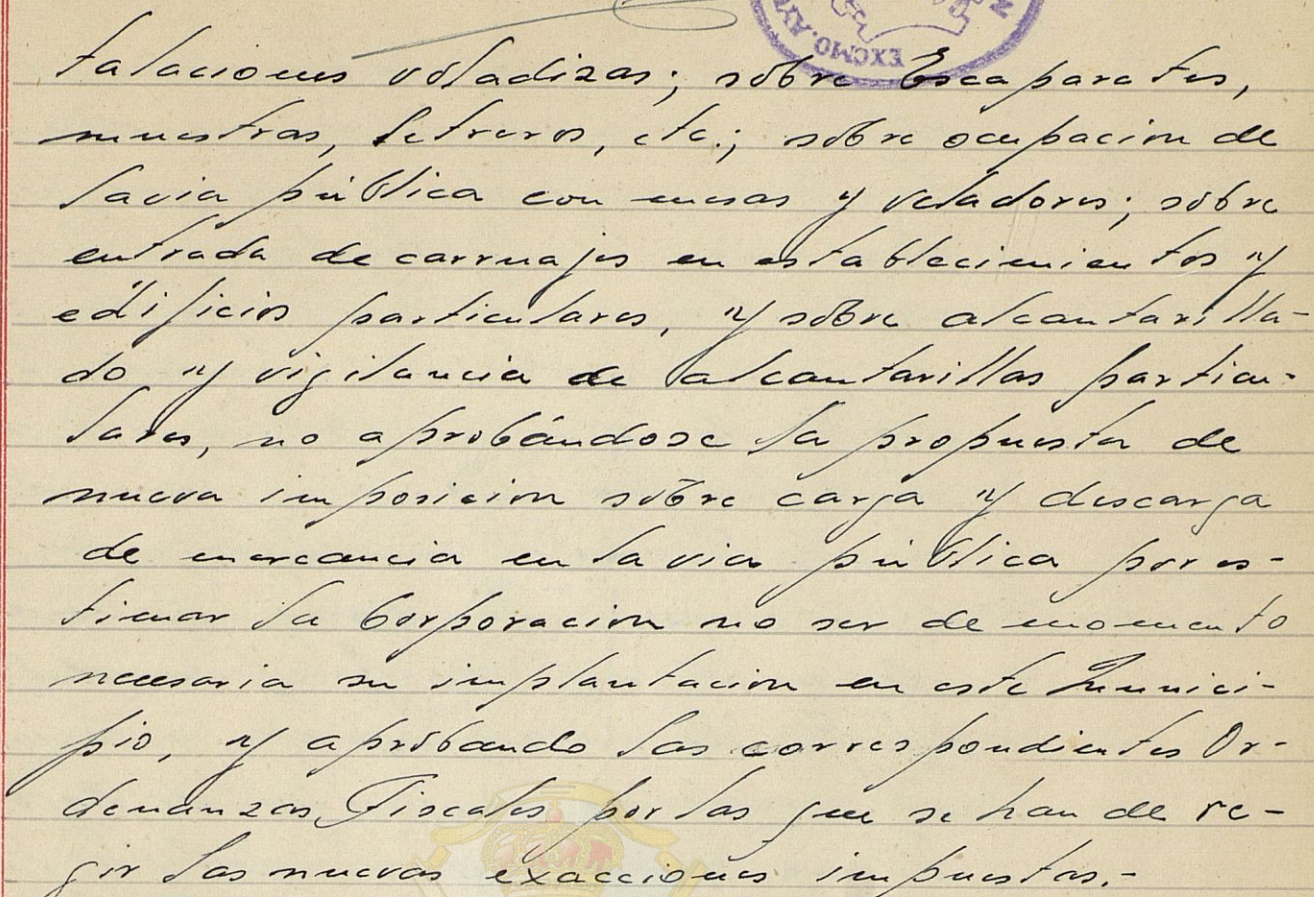 EXCMO. AY
talaciones voladizas; sobre Escaparates,
muestras, letreros, etc.; sobre ocupacion de
la via pública con mesas y veladores; sobre
entrada de carruajes en establecimientos y
edificios particulares, y sobre alcantarilla-
do y vigilancia de alcantarillas particu-
lares, no aprobándose la propuesta de
nueva imposicion sobre carga y descarga
de mercancia en la via pública por es-
timar la Corporacion no ser de momento
necesaria su implantacion en este Munici-
pio, y aprobando las correspondientes Or-
denanzas Fiscales por las que se han de re-
gir las nuevas exacciones impuestas.-